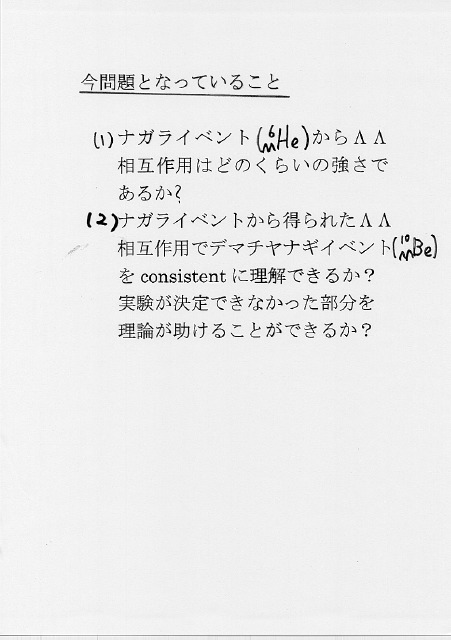 今問題となっていること
(1)ナガライベント(⁶ΛΛHe)からΛΛ
相互作用はどのくらいの強さで
あるか?
(2)ナガライベントから得られたΛΛ
相互作用でデマチヤナギイベント(¹⁰ΛΛBe)
をconsistentに理解できるか?
実験が決定できなかった部分を
理論が助けることができるか?